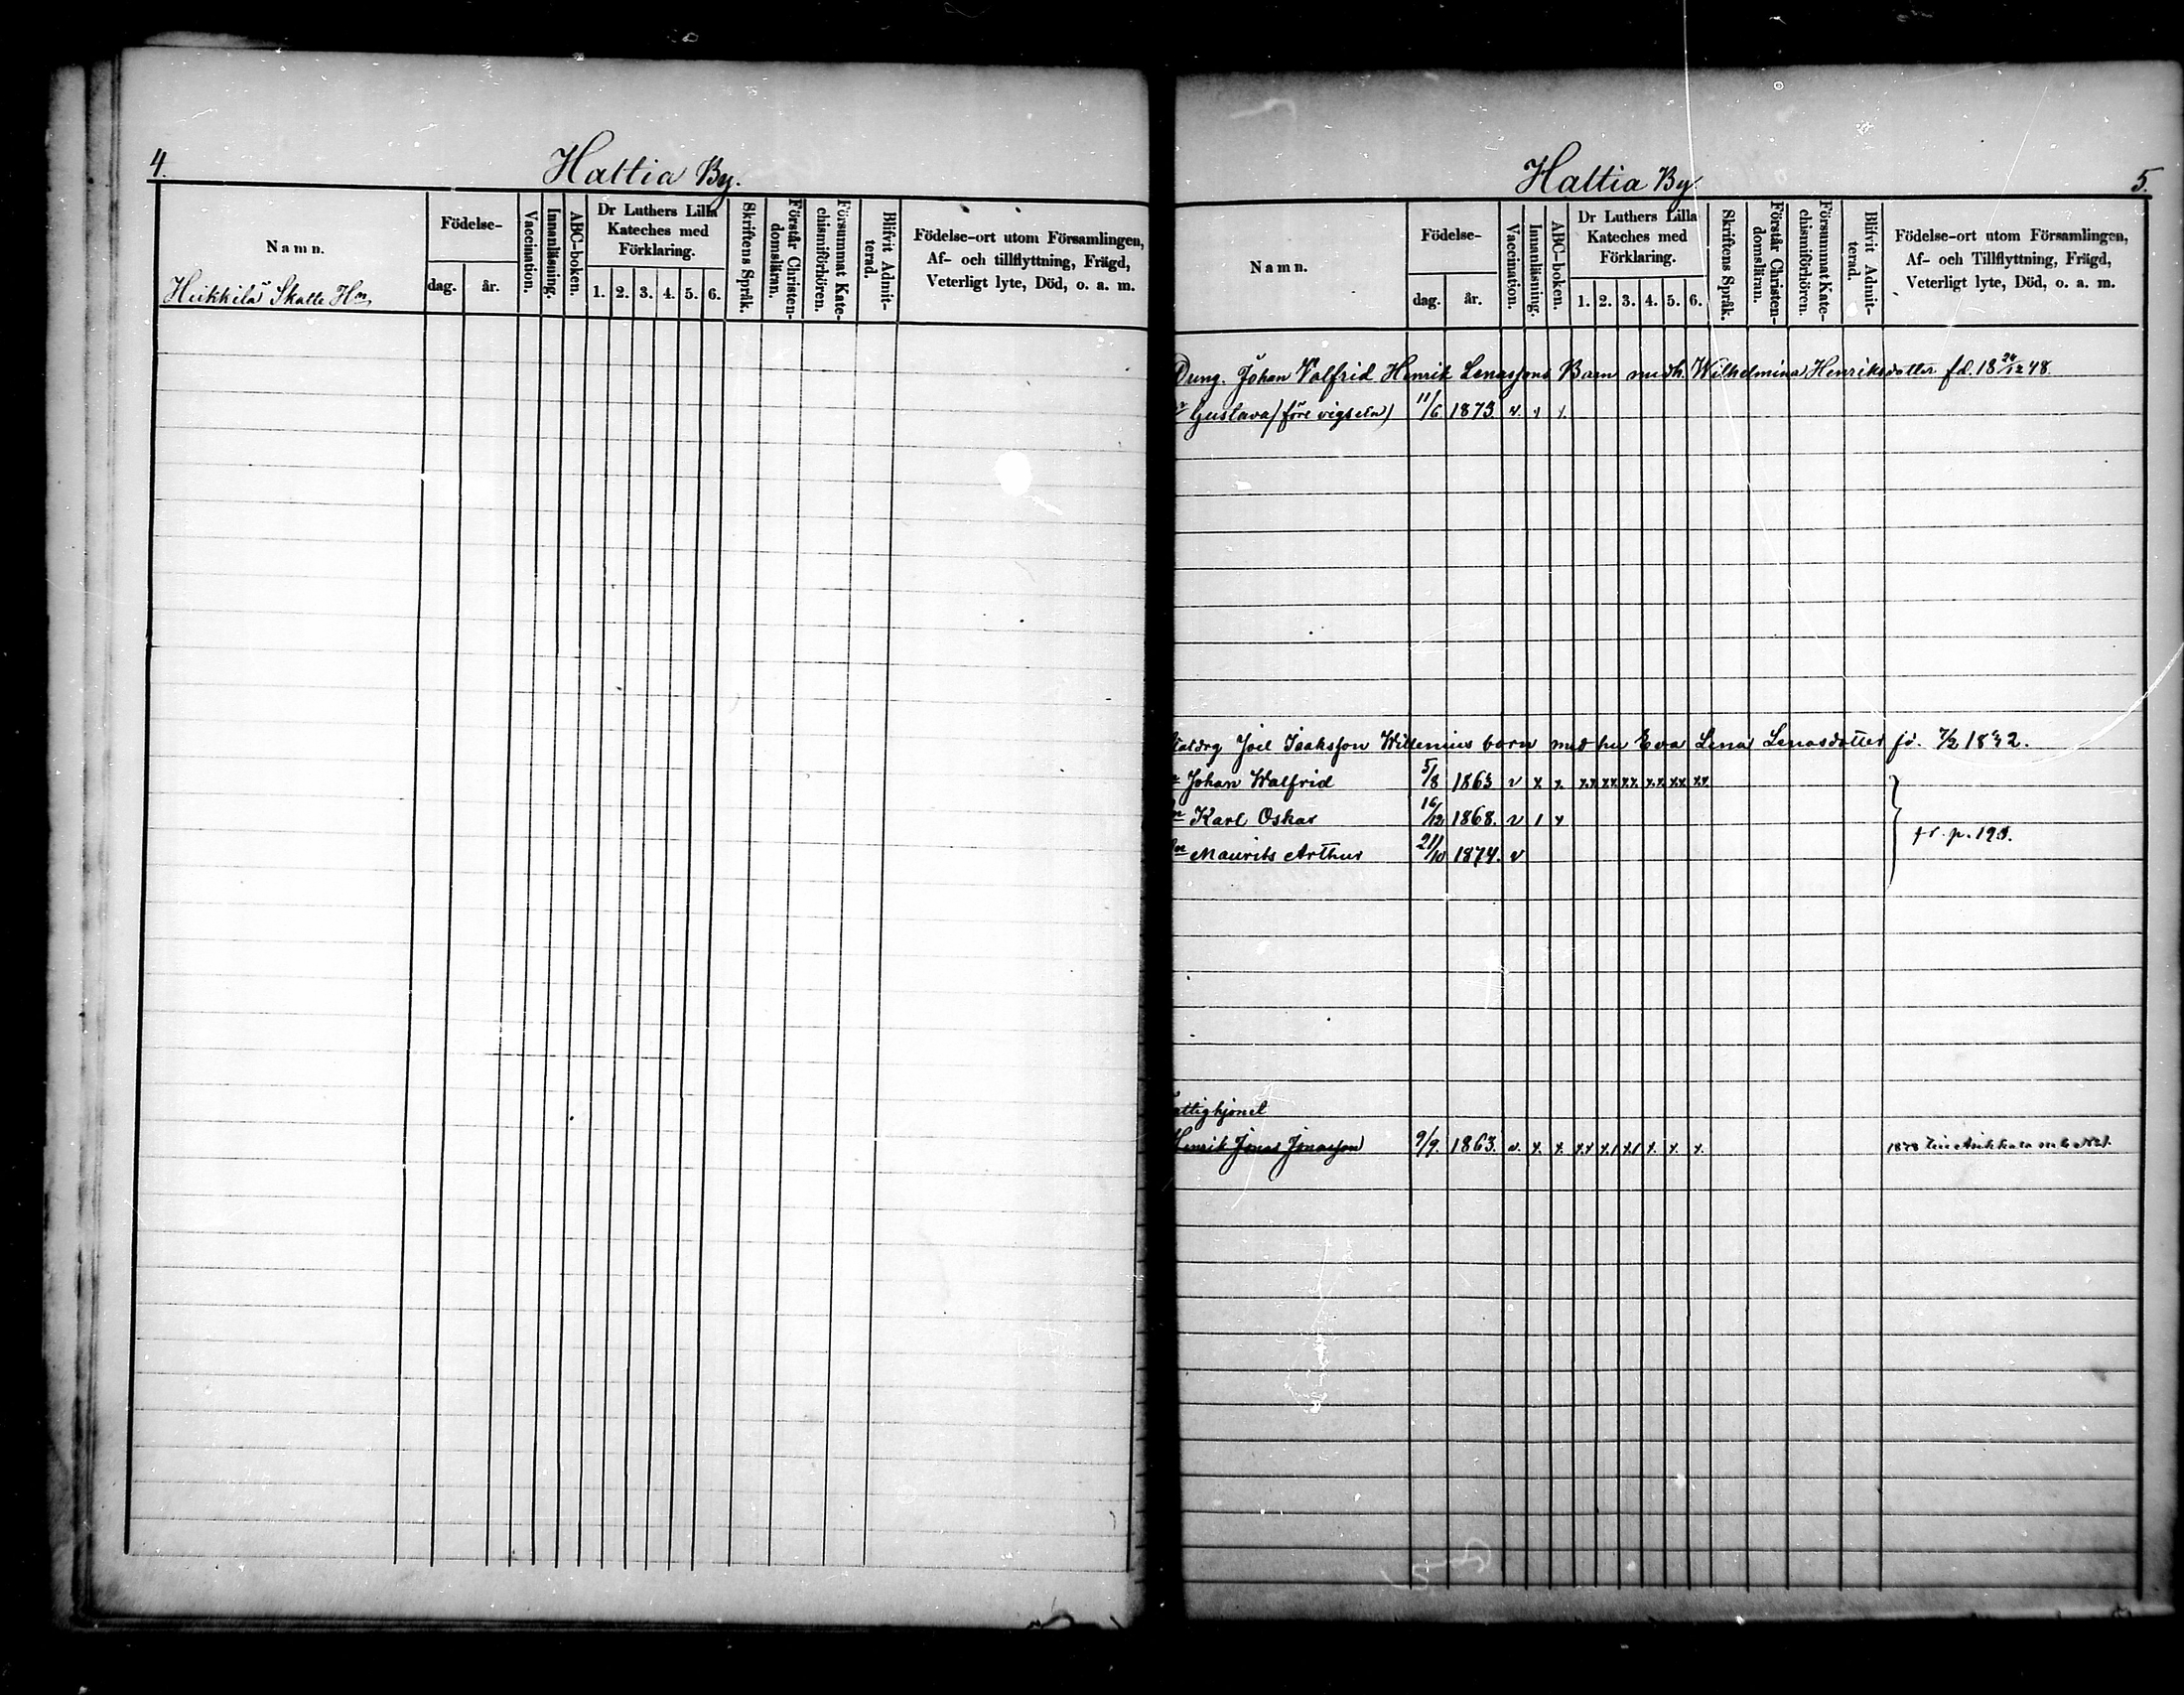 4.
Haltia By.
Namn.
Födelse-
dag.
år.
Vaccination.
Innanläsning.
ABC-boken.
Dr Luthers Lilla
Kateches med
Förklaring.
1. 2. 3. 4. 5. 6.
Skriftens Språk.
Förstår Christen-
domsläran.
Försummat Kate-
chismiförhören.
Blifvit Admit-
terad.
Födelse-ort utom Församlingen,
Af- och tillflyttning, Frägd,
Veterligt lyte, Död, o. a. m.
Heikkilä Skatte Hn
Haltia By
5.
Namn.
Födelse-
dag.
år.
Vaccination.
Innanläsning.
ABC-boken.
Dr Luthers Lilla
Kateches med
Förklaring.
1. 2. 3. 4. 5. 6.
Skriftens Språk.
Förstår Christen-
domsläran.
Försummat Kate-
chismiförhören.
Blifvit Admit-
terad.
Födelse-ort utom Församlingen,
Af- och Tillflyttning, Frägd,
Veterligt lyte, Död, o. a. m.
Dräng. Johan Valfrid Henrik Barn med h. Wilhelmina Henriksdotter fd. 18 24/12 48
Gustava (före vigseln) 11/6 1873 v. x x
Joel Isaksson Willenius barn med hu Eva Lena Lenasdotter fö. 7/2 1842.
Johan Walfrid 5/8 1863 v x x. xx xx xx xx xx xx
Karl Oskar 16/12 1868. v 1 x
Maurits Arthur 21/10 1874. v
fr. p. 193.
attighjonet
Henrik Jonas Jonasson 9/9. 1863. v. x. x. xx x1 x1 x. x. x.
1878